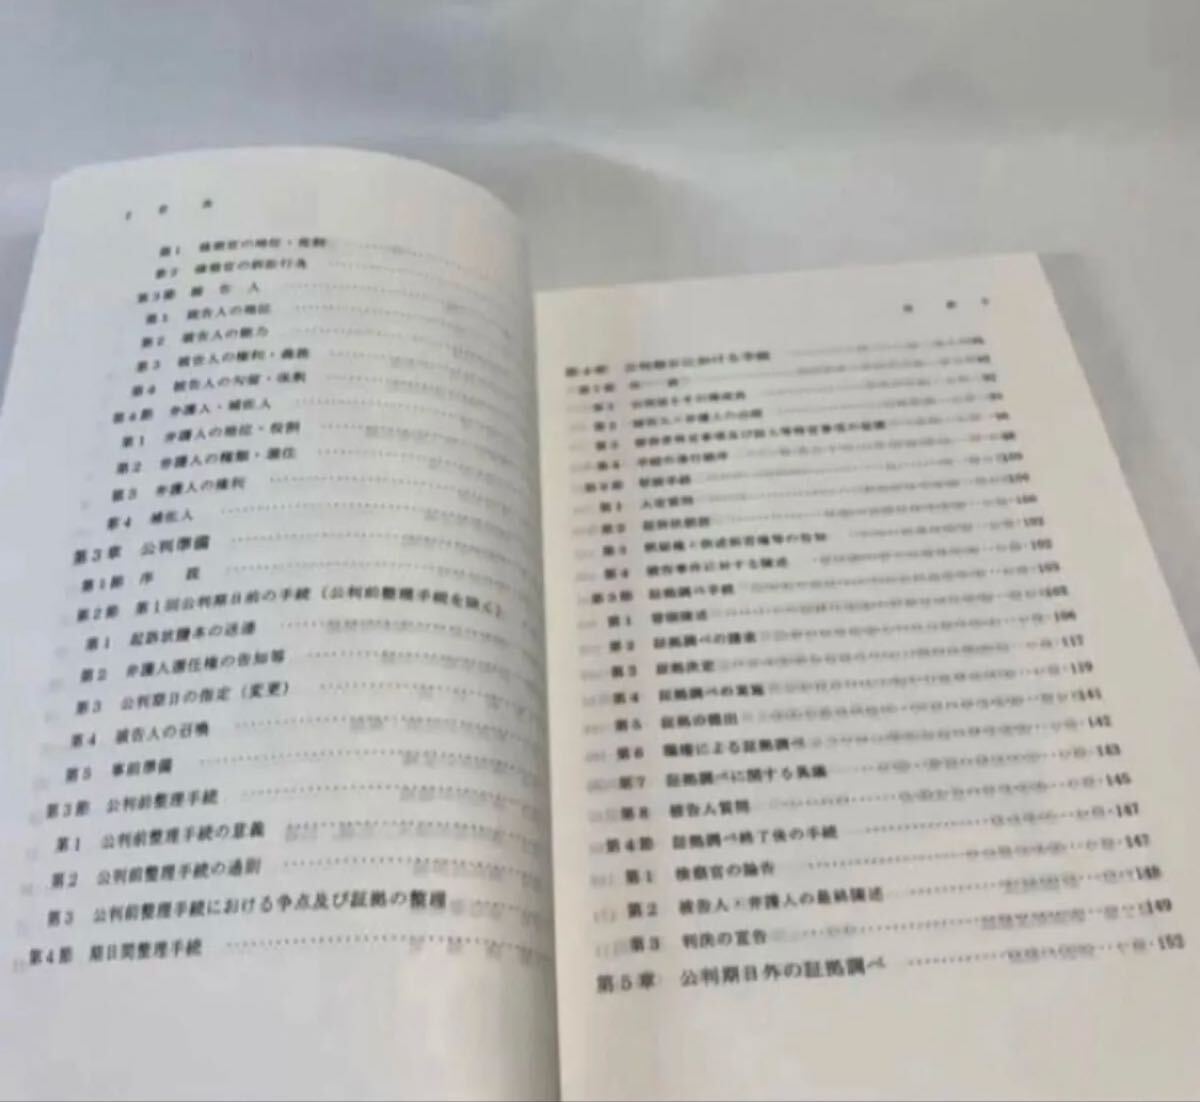 2 目 次
第1 検察官の地位・役割
第2 検察官の訴訟行為
第3節 被 告 人
第1 被告人の地位
第2 被告人の能力
第3 被告人の権利・義務
第4 被告人の勾留・保釈
第4節 弁護人・補佐人
第1 弁護人の地位・役割
第2 弁護人の種類・選任
第3 弁護人の権利
第4 補佐人
第3章 公判準備
第1節 序 説
第2節 第1回公判期日前の手続(公判前整理手続を除く)
第1 起訴状謄本の送達
第2 弁護人選任権の告知等
第3 公判期日の指定(変更)
第4 被告人の召喚
第5 事前準備
第3節 公判前整理手続
第1 公判前整理手続の意義
第2 公判前整理手続の通則
第3 公判前整理手続における争点及び証拠の整理
第4節 期日間整理手続
目 次 3
第4章 公判期日における手続
第1節
第1
第2 被告人・弁護人の出頭
第3
第4 手続の進行順序
第2節 冒頭手続
第1 人定質問 100
第2 起訴状朗読 100
第3 黙秘権・供述拒否権等の告知 102
第4 被告事件に対する陳述 102
第3節 証拠調べ手続
第1 冒頭陳述
第2 証拠調べの請求 106
第3 証拠決定 117
第4 証拠調べの実施 119
第5 証拠の提出 141
第6 職権による証拠調べ 142
第7 証拠調べに関する異議 143
第8 被告人質問 145
第4節 証拠調べ終了後の手続 147
第1 検察官の論告 147
第2 被告人・弁護人の最終陳述 148
第3 判決の宣告 149
第5章 公判期日外の証拠調べ 152